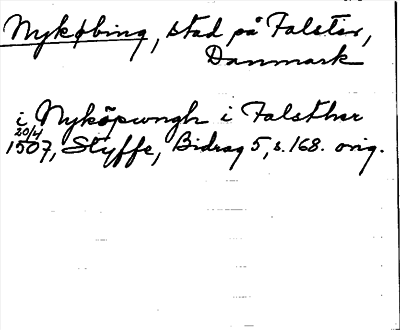 Nykøbing, stad på Falster,
Danmark
i Nyköpwngh i Falsther
20/4
1507, Styffe, Bidrag 5, s. 168. orig.